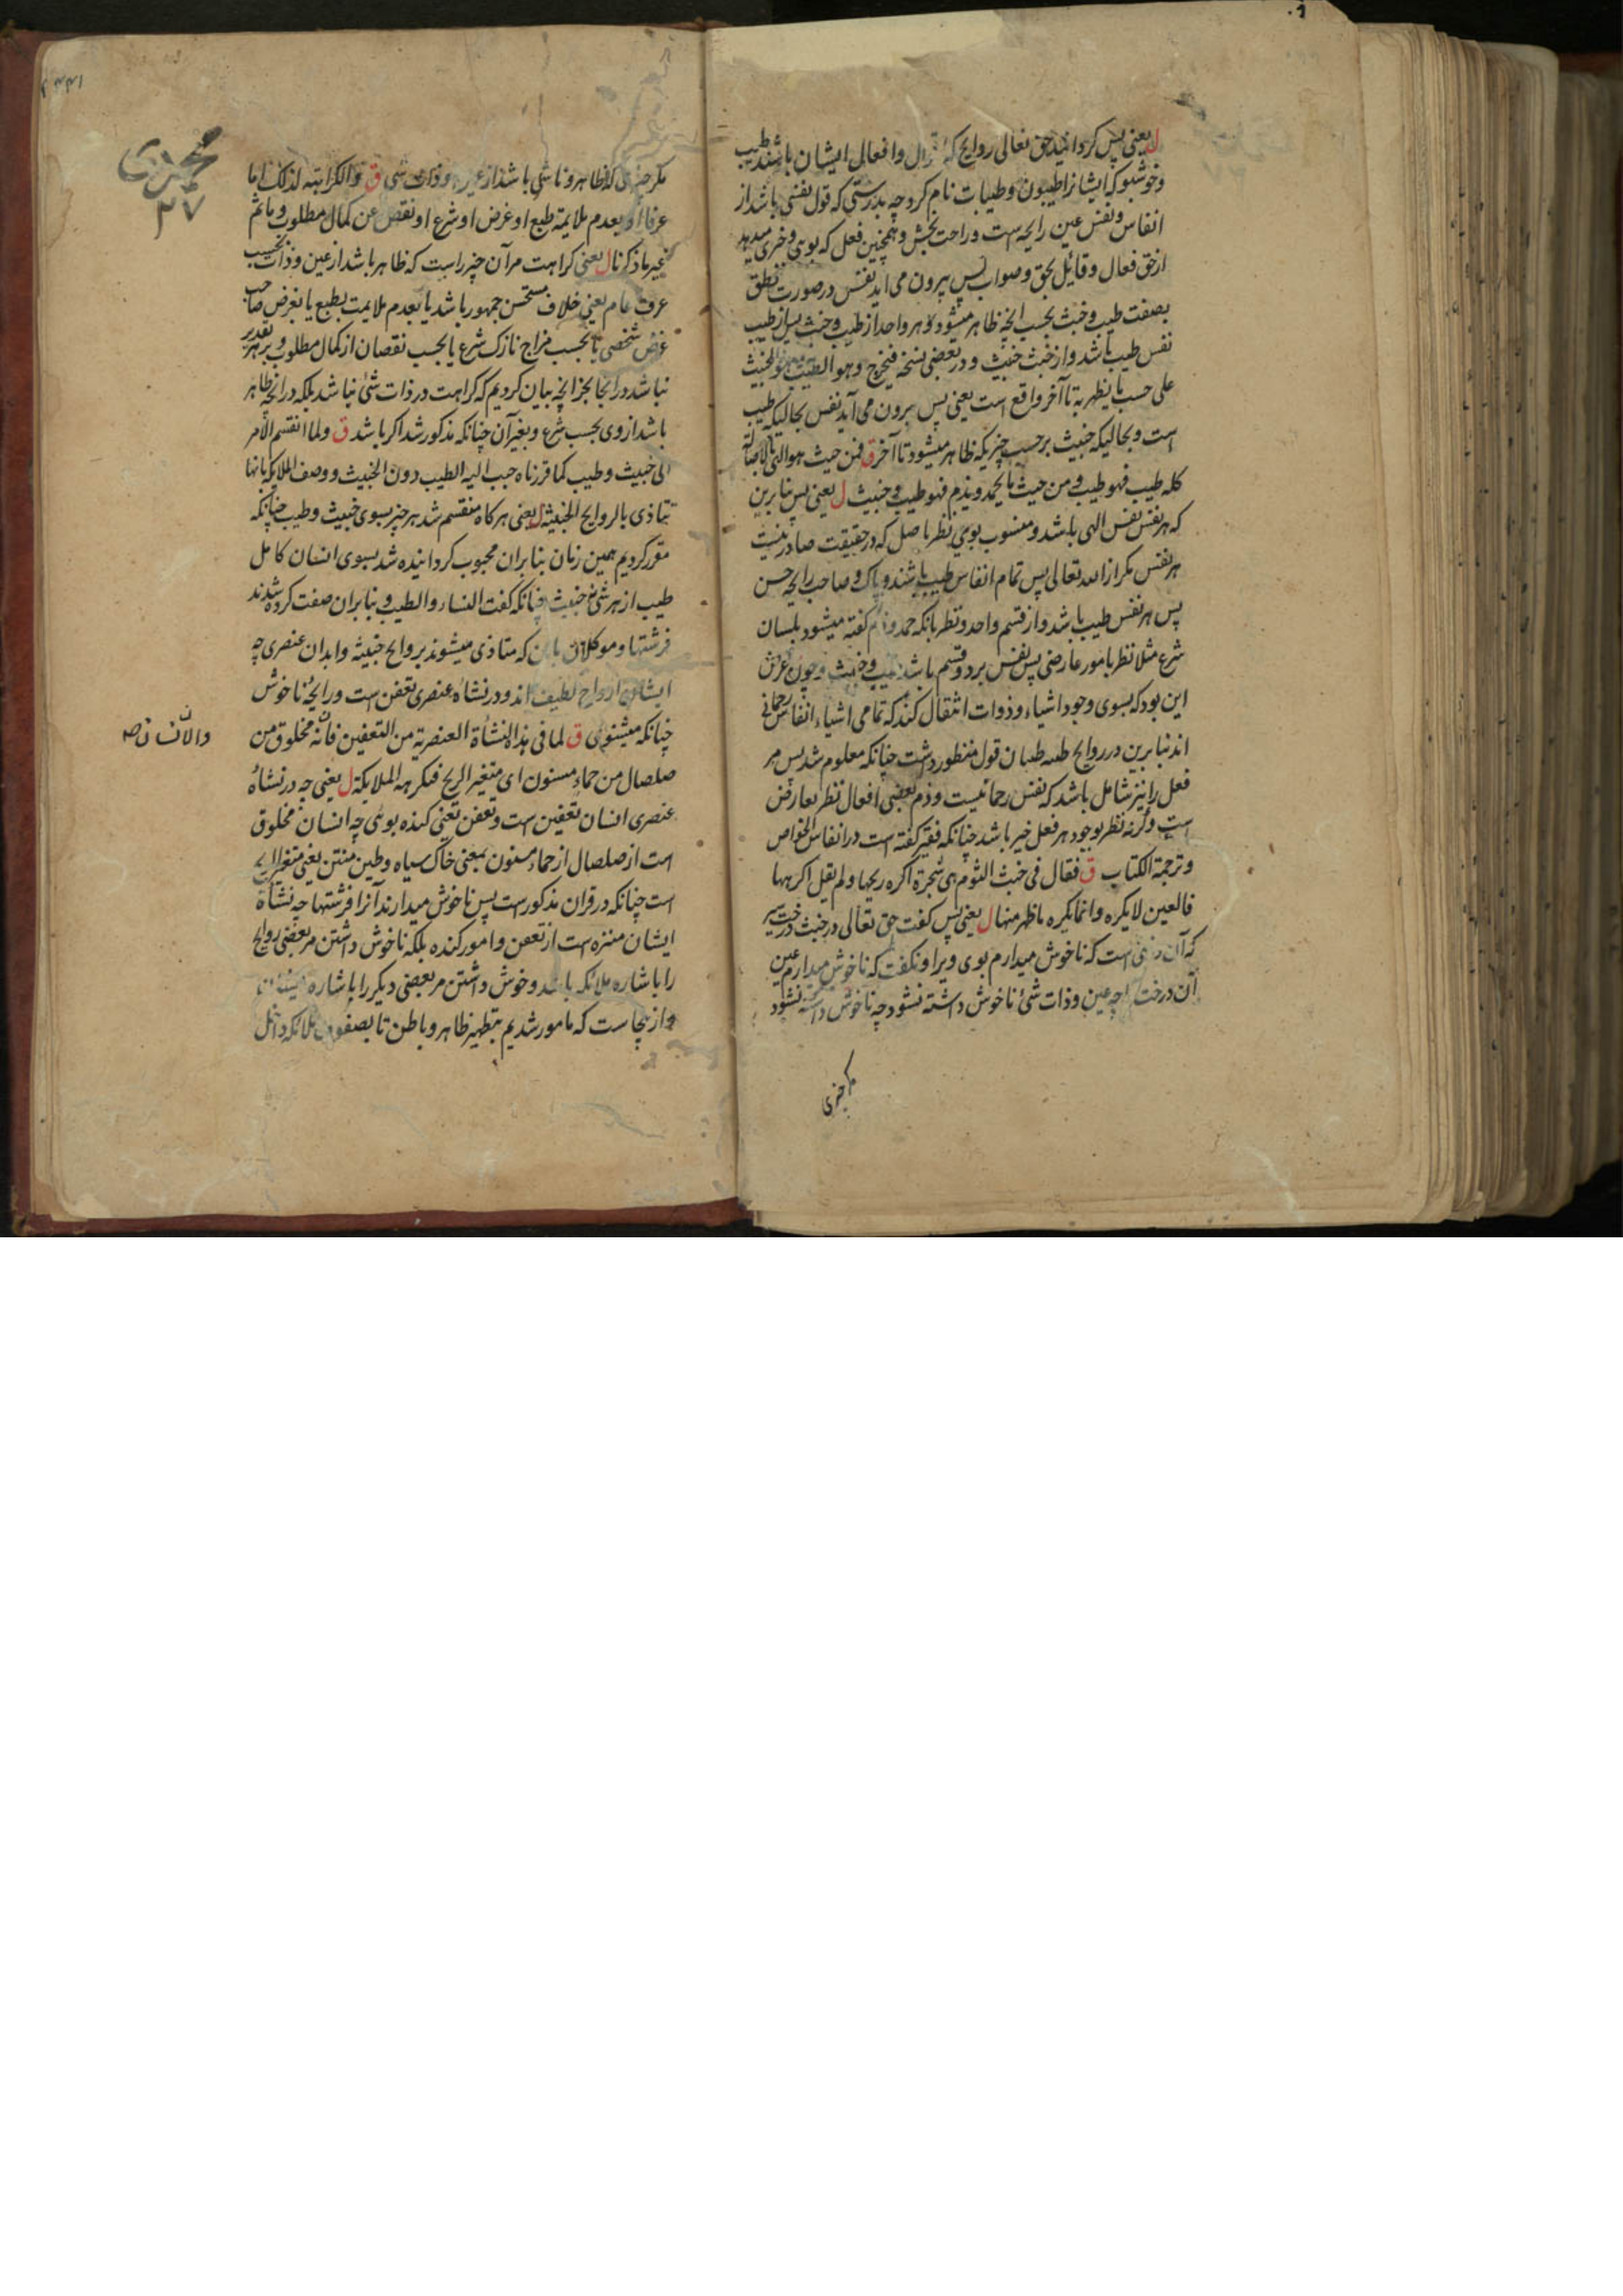 ل یعنی پس کردانید حق تعالی روایح که اقوال وافعال ایشان باشد طیب
وخوشبو که ایشانرا طیبون وطیبات نام کرد چه بدرستی که قول نفسی باشد از
انفاس ونفس عین رایحه است وراحت بخش وهمچنین فعل که بوی وخبری میدهد
ازحق فعال وقائل بحق وصواب پس بیرون می اید نفس درصورت نطق
بصفت طیب وخبث بحسب انچه ظاهر میشود وهر واحد از طیب وخبث پس از طیب
نفس طیب باشد واز خبث خبیث ودر بعضی نسخه فیخرج وهو الطیب وهو الخبیث
علی حسب ما یظهر به تا آخر واقع است یعنی پس بیرون می آید نفس بحالیکه طیب
است وبحالیکه خبیث برحسب چیزیکه ظاهر میشود تا آخر ق فمن حیث هو الهی بالاصالة
کله طیب فهو طیب ومن حیث ما یحمد ویذم فهو طیب وخبیث ل یعنی پس بنابرین
که هر نفس نفس الهی باشد ومنسوب بوی نظر باصل که درحقیقت صادر نیست
هر نفس مکر از الله تعالی پس تمام انفاس طیب باشند وپاک وصاحب رایحه حسن
پس هر نفس طیب باشد واز قسم واحد ونظر بانکه حمد وذم کفته میشود بلسان
شرع مثلا نظر بامور عارضی پس نفس بر دو قسم باشد طیب وخبیث وچون غرض
این بود که بسوی وجود اشیاء وذوات انتقال کند که تمامی اشیاء انفاس رحمانی
اند بنابرین در روایح طیبه طیبان قول منظور داشت چنانکه معلوم شد پس مر
فعل را نیز شامل باشد که نفس رحمانیست وذم بعضی افعال نظر بعارض
است وکرنه نظر بوجود هر فعل خیر باشد چنانکه فقیر کفته است در انفاس الخواص
وترجمة الکتاب ق فقال فی خبث الثوم هی شجرة اکره ریحها ولم یقل اکرهها
فالعین لا یکره وانما یکره ما ظهر منها ل یعنی پس کفت حق تعالی در خبث درخت سیر
که آن درختی است که ناخوش میدارم بوی ویرا ونکفت که ناخوش میدارم عین
آن درخت را چه عین وذات شئ ناخوش داشته نشود چه ناخوش داشته نشود
مکر چیزی
محمدی
۲۷
مکر چیزی که ظاهر وناشی باشد از عین وذات شی ق والکراهته لذلک اما
عرفا او بعدم ملایمة طبع او غرض او شرع او نقص عن کمال مطلوب وما ثم
غیر ما ذکرنا ل یعنی کراهت مر آن چیز راست که ظاهر باشد از عین وذات بحسب
عرف عام یعنی خلاف مستحسن جمهور باشد یا بعدم ملایمت بطبع یا بغرض صاحب
غرض شخصی یا بحسب مزاج نازک شرع یا بحسب نقصان از کمال مطلوب وبر هر تقدیر
نباشد در انجا بجز انچه بیان کردیم که کراهت در ذات شئ نباشد بلکه در انچه ظاهر
باشد از وی بحسب شرع وبغیر آن چنانکه مذکور شد اکر باشد ق ولما انقسم الامر
الی خبیث وطیب کما قررناه حبب الیه الطیب دون الخبیث ووصف الملایکه بانها
تتاذی بالروایح الخبیثه ل یعنی هرکاه منقسم شد هر چیز بسوی خبیث وطیب چنانکه
مقرر کردیم همین زمان بنابران محبوب کردانیده شد بسوی انسان کامل
طیب از هر شئ نه خبیث چنانکه کفت النساء والطیب وبنابران صفت کرده شدند
فرشتها وموکلان باین که متاذی میشوند بروایح خبیثه وابدان عنصری چه
ایشان ارواح لطیف اند ودر نشاه عنصری تعفن است ورایحه ناخوش
چنانکه میشنوی ق لما فی هذه النشأة العنصریة من التعفین فانه مخلوق من
والانسان صه
صلصال من حماء مسنون ای متغیر الریح فتکرهه الملایکة ل یعنی چه در نشاه
عنصری انسان تعفین است وتعفن یعنی کنده بوئی چه انسان مخلوق
است از صلصال از حماء مسنون بمعنی خاک سیاه وطین منتن یعنی متغیر الریح
است چنانکه در قران مذکور است پس ناخوش میدارند آنرا فرشتها چه نشأة
ایشان منزه است از تعفن وامور کنده بلکه ناخوش داشتن مر بعضی روایح
را باشاره ملائکه باشد وخوش داشتن مر بعضی دیکر را باشاره ایشان
واز ینجا است که مامور شدیم بتطهیر ظاهر وباطن تا بصفوف ملائکه داخل